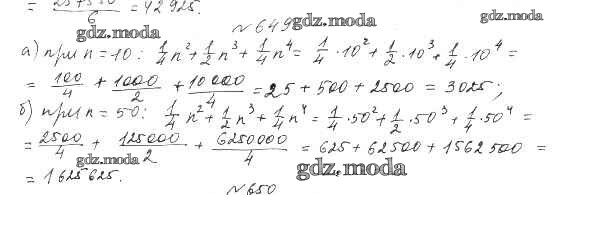 = 257550/6 = 42925.
№649 gdz.moda gdz.moda
а) при n=10: 1/4 n² + 1/2 n³ + 1/4 n⁴ = 1/4 · 10² + 1/2 · 10³ + 1/4 · 10⁴ =
= 100/4 + 1000/2 + 10000/4 = 25 + 500 + 2500 = 3025;
б) при n = 50: 1/4 n² + 1/2 n³ + 1/4 n⁴ = 1/4 · 50² + 1/2 · 50³ + 1/4 · 50⁴ =
= 2500/4 + 125000/2 + 6250000/4 = 625 + 62500 + 1562500 =
gdz.moda gdz.moda
= 1625625.
№650